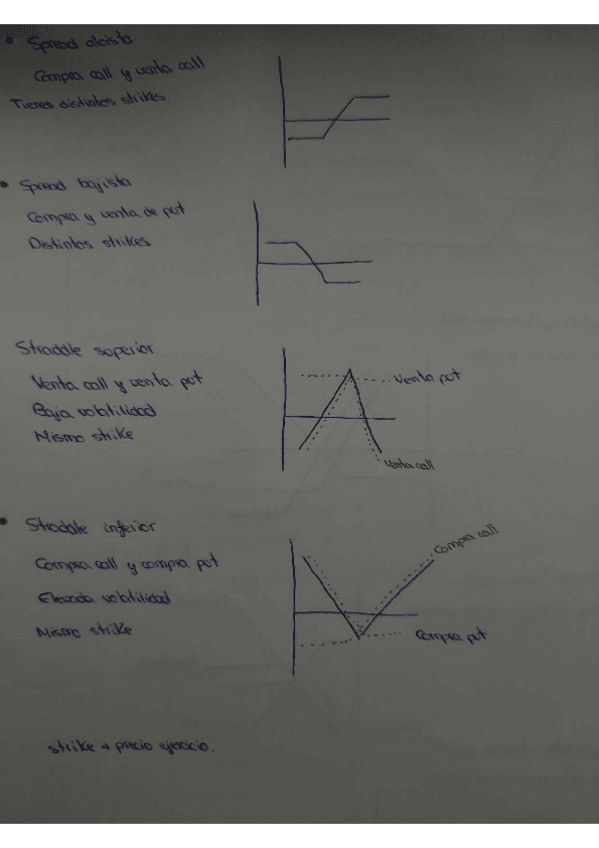 • Spread alcista
Compra call y venta call
Tienen distintos strikes
• Spread bajista
Compra y venta de put
Distintos strikes
Straddle superior
Venta call y venta put
Baja volatilidad
Mismo strike
Venta put
Venta call
• Straddle inferior
Compra call y compra put
Elevada volatilidad
Mismo strike
Compra call
Compra put
strike → precio ejercicio.